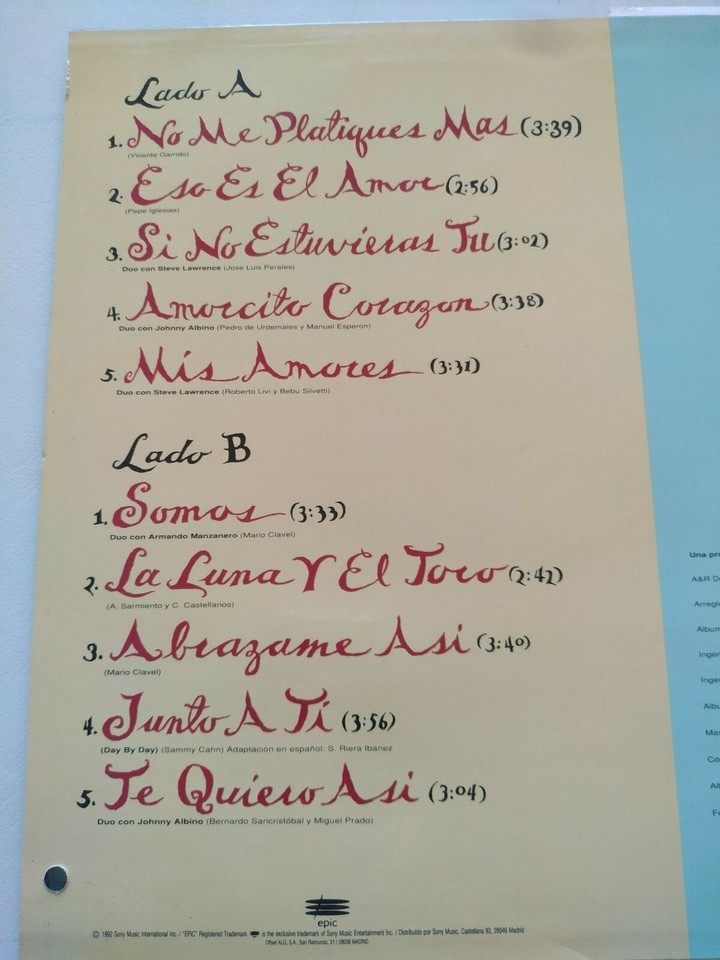 Lado A
1. No Me Platiques Mas (3:39)
(Vicente Garrido)
2. Eso Es El Amor (2:56)
(Pepe Iglesias)
3. Si No Estuvieras Tu (3:02)
Duo con Steve Lawrence (Jose Luis Perales)
4. Amorcito Corazon (3:38)
Duo con Johnny Albino (Pedro de Urdemales y Manuel Esperon)
5. Mis Amores (3:31)
Duo con Steve Lawrence (Roberto Livi y Bebu Silvetti)
Lado B
1. Somos (3:33)
Duo con Armando Manzanero (Mario Clavel)
2. La Luna Y El Toro (2:42)
(A. Sarmiento y C. Castellanos)
3. Abrazame Asi (3:40)
(Mario Clavel)
4. Junto A Ti (3:56)
(Day By Day) (Sammy Cahn) Adaptación en español: S. Riera Ibanez
5. Te Quiero Asi (3:04)
Duo con Johnny Albino (Bernardo Sancristóbal y Miguel Prado)
epic
© 1992 Sony Music International Inc. / "EPIC" Registered Trademark is the exclusive trademark of Sony Music Entertainment Inc. / Distribuido por Sony Music, Castellana 93, 28046 Madrid
Offset ALG, S.A., San Raimundo, 31 / 28039 MADRID
Una
A&R